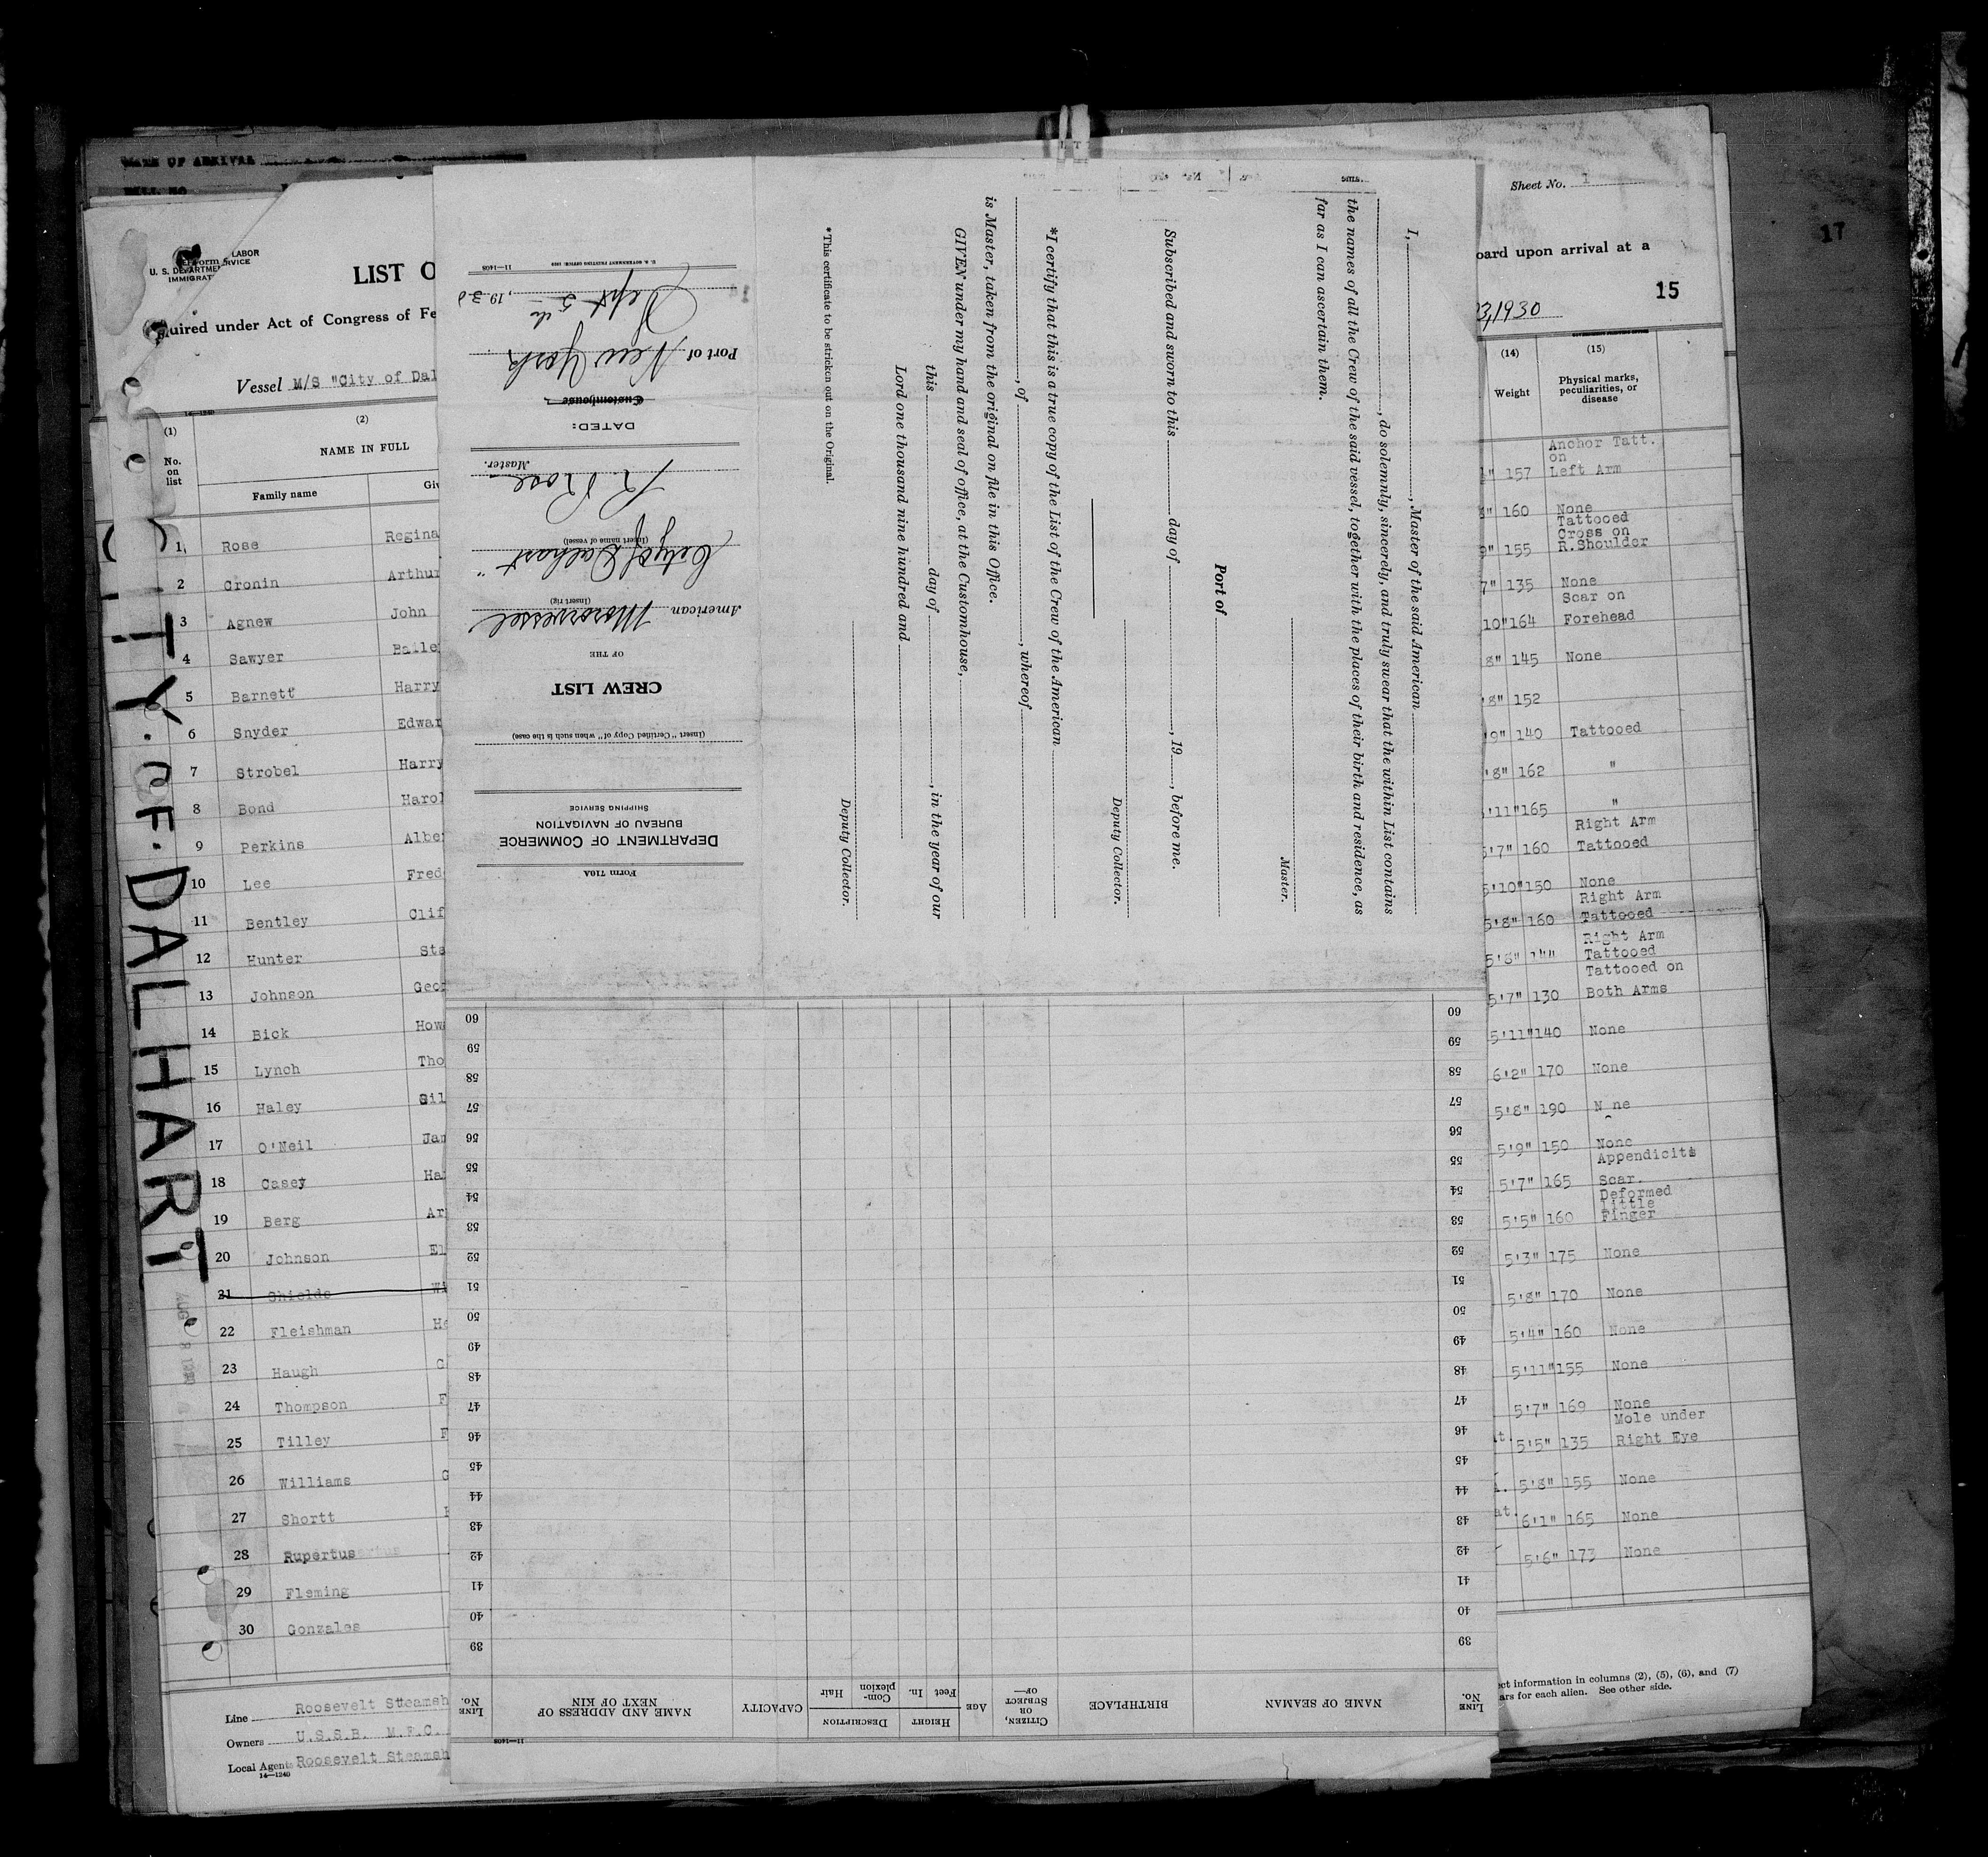 Sheet No. I
17
U. S. DEPARTMENT LABOR
IMMIGRAT SERVICE
LIST O
oard upon arrival at a
quired under Act of Congress of Fe
15
3, 1930
Vessel M/S "City of Dal
14—1240
(1)
No. on list
(2)
NAME IN FULL
Family name
Giv
1 Rose Regina
2 Cronin Arthur
3 Agnew John
4 Sawyer Baile
5 Barnett Harry
6 Snyder Edwar
7 Strobel Harry
8 Bond Harol
9 Perkins Albe
10 Lee Fred
11 Bentley Clif
12 Hunter Sta
13 Johnson Geor
14 Bick How
15 Lynch Tho
16 Haley Gil
17 O'Neil Jam
18 Casey Ha
19 Berg Ar
20 Johnson El
21 Shields Wi
22 Fleishman He
23 Haugh G
24 Thompson F
25 Tilley F
26 Williams G
27 Shortt
28 Rupertus
29 Fleming
30 Gonzales
Line Roosevelt Steamsh
Owners U.S.S.B. M.F.C.
Local Agents Roosevelt Steamsh
14—1240
CITY OF DALHART
Form 710A
DEPARTMENT OF COMMERCE
BUREAU OF NAVIGATION
SHIPPING SERVICE
(Insert "Certified Copy of" when such is the case)
CREW LIST
OF THE
American Motorvessel
(Insert rig)
"City of Dalhart"
(Insert name of vessel)
R. Rose
Master.
DATED:
Customhouse
Port of New York
Sept 5th, 1930
U. S. GOVERNMENT PRINTING OFFICE: 1929 11—1408
I, , Master of the said American
, do solemnly, sincerely, and truly swear that the within List contains
the names of all the Crew of the said vessel, together with the places of their birth and residence, as
far as I can ascertain them.
Master.
Port of
Subscribed and sworn to this day of , 19 , before me.
Deputy Collector.
*I certify that this is a true copy of the List of the Crew of the American
, of , whereof
is Master, taken from the original on file in this Office.
GIVEN under my hand and seal of office, at the Customhouse,
this day of , in the year of our
Lord one thousand nine hundred and
Deputy Collector.
*This certificate to be stricken out on the Original.
LINE No.
NAME OF SEAMAN
BIRTHPLACE
CITIZEN, OR SUBJECT OF—
AGE
HEIGHT
Feet In.
DESCRIPTION
Complexion Hair
CAPACITY
NAME AND ADDRESS OF NEXT OF KIN
LINE No.
11—1408
39 39
40 40
41 41
42 42
43 43
44 44
45 45
46 46
47 47
48 48
49 49
50 50
51 51
52 52
53 53
54 54
55 55
56 56
57 57
58 58
59 59
60 60
(14)
Weight
(15)
Physical marks, peculiarities, or disease
157 Anchor Tatt. on Left Arm
160 None
9" 155 Tattooed Cross on R.Shoulder
7" 135 None
10" 164 Scar on Forehead
8" 145 None
'8" 152
'9" 140 Tattooed
'8" 162 "
'11" 165 "
5'7" 160 Right Arm Tattooed
5'10" 150 None
5'8" 160 Right Arm Tattooed
5'8" 144 Right Arm Tattooed
5'7" 130 Tattooed on Both Arms
5'11" 140 None
6'2" 170 None
5'8" 190 N ne
5'9" 150 None
5'7" 165 Appendicits Scar.
5'5" 160 Deformed Little Finger
5'3" 175 None
5'8" 170 None
5'4" 160 None
5'11" 155 None
5'7" 169 None
5'5" 135 Mole under Right Eye
5'8" 155 None
6'1" 165 None
5'6" 173 None
ect information in columns (2), (5), (6), and (7)
ars for each alien. See other side.